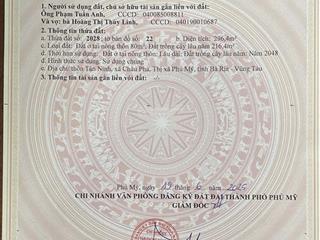 1. Người sử dụng đất, chủ sở hữu tài sản gắn liền với đất:
Ông Phạm Tuấn Anh, CCCD: 040085008811
Và vợ: bà Hoàng Thị Thùy Linh, CCCD: 040190010687
2. Thông tin thửa đất:
a. Thửa đất số: 2028 tờ bản đồ số: 22 b. Diện tích: 296,4m²
c. Loại đất: Đất ở tại nông thôn 80m²; Đất trồng cây lâu năm 216,4m²
d. Thời hạn sử dụng: Đất ở tại nông thôn: Lâu dài; Đất trồng cây lâu năm: Năm 2048
đ. Hình thức sử dụng: Sử dụng chung
e. Địa chỉ: thôn Tân Ninh, xã Châu Pha, Thị xã Phú Mỹ, tỉnh Bà Rịa - Vũng Tàu
3. Thông tin tài sản gắn liền với đất: -/-
Phú Mỹ, ngày 19 tháng 6 năm 2025
CHI NHÁNH VĂN PHÒNG ĐĂNG KÝ ĐẤT ĐAI THÀNH PHỐ PHÚ MỸ
GIÁM ĐỐC